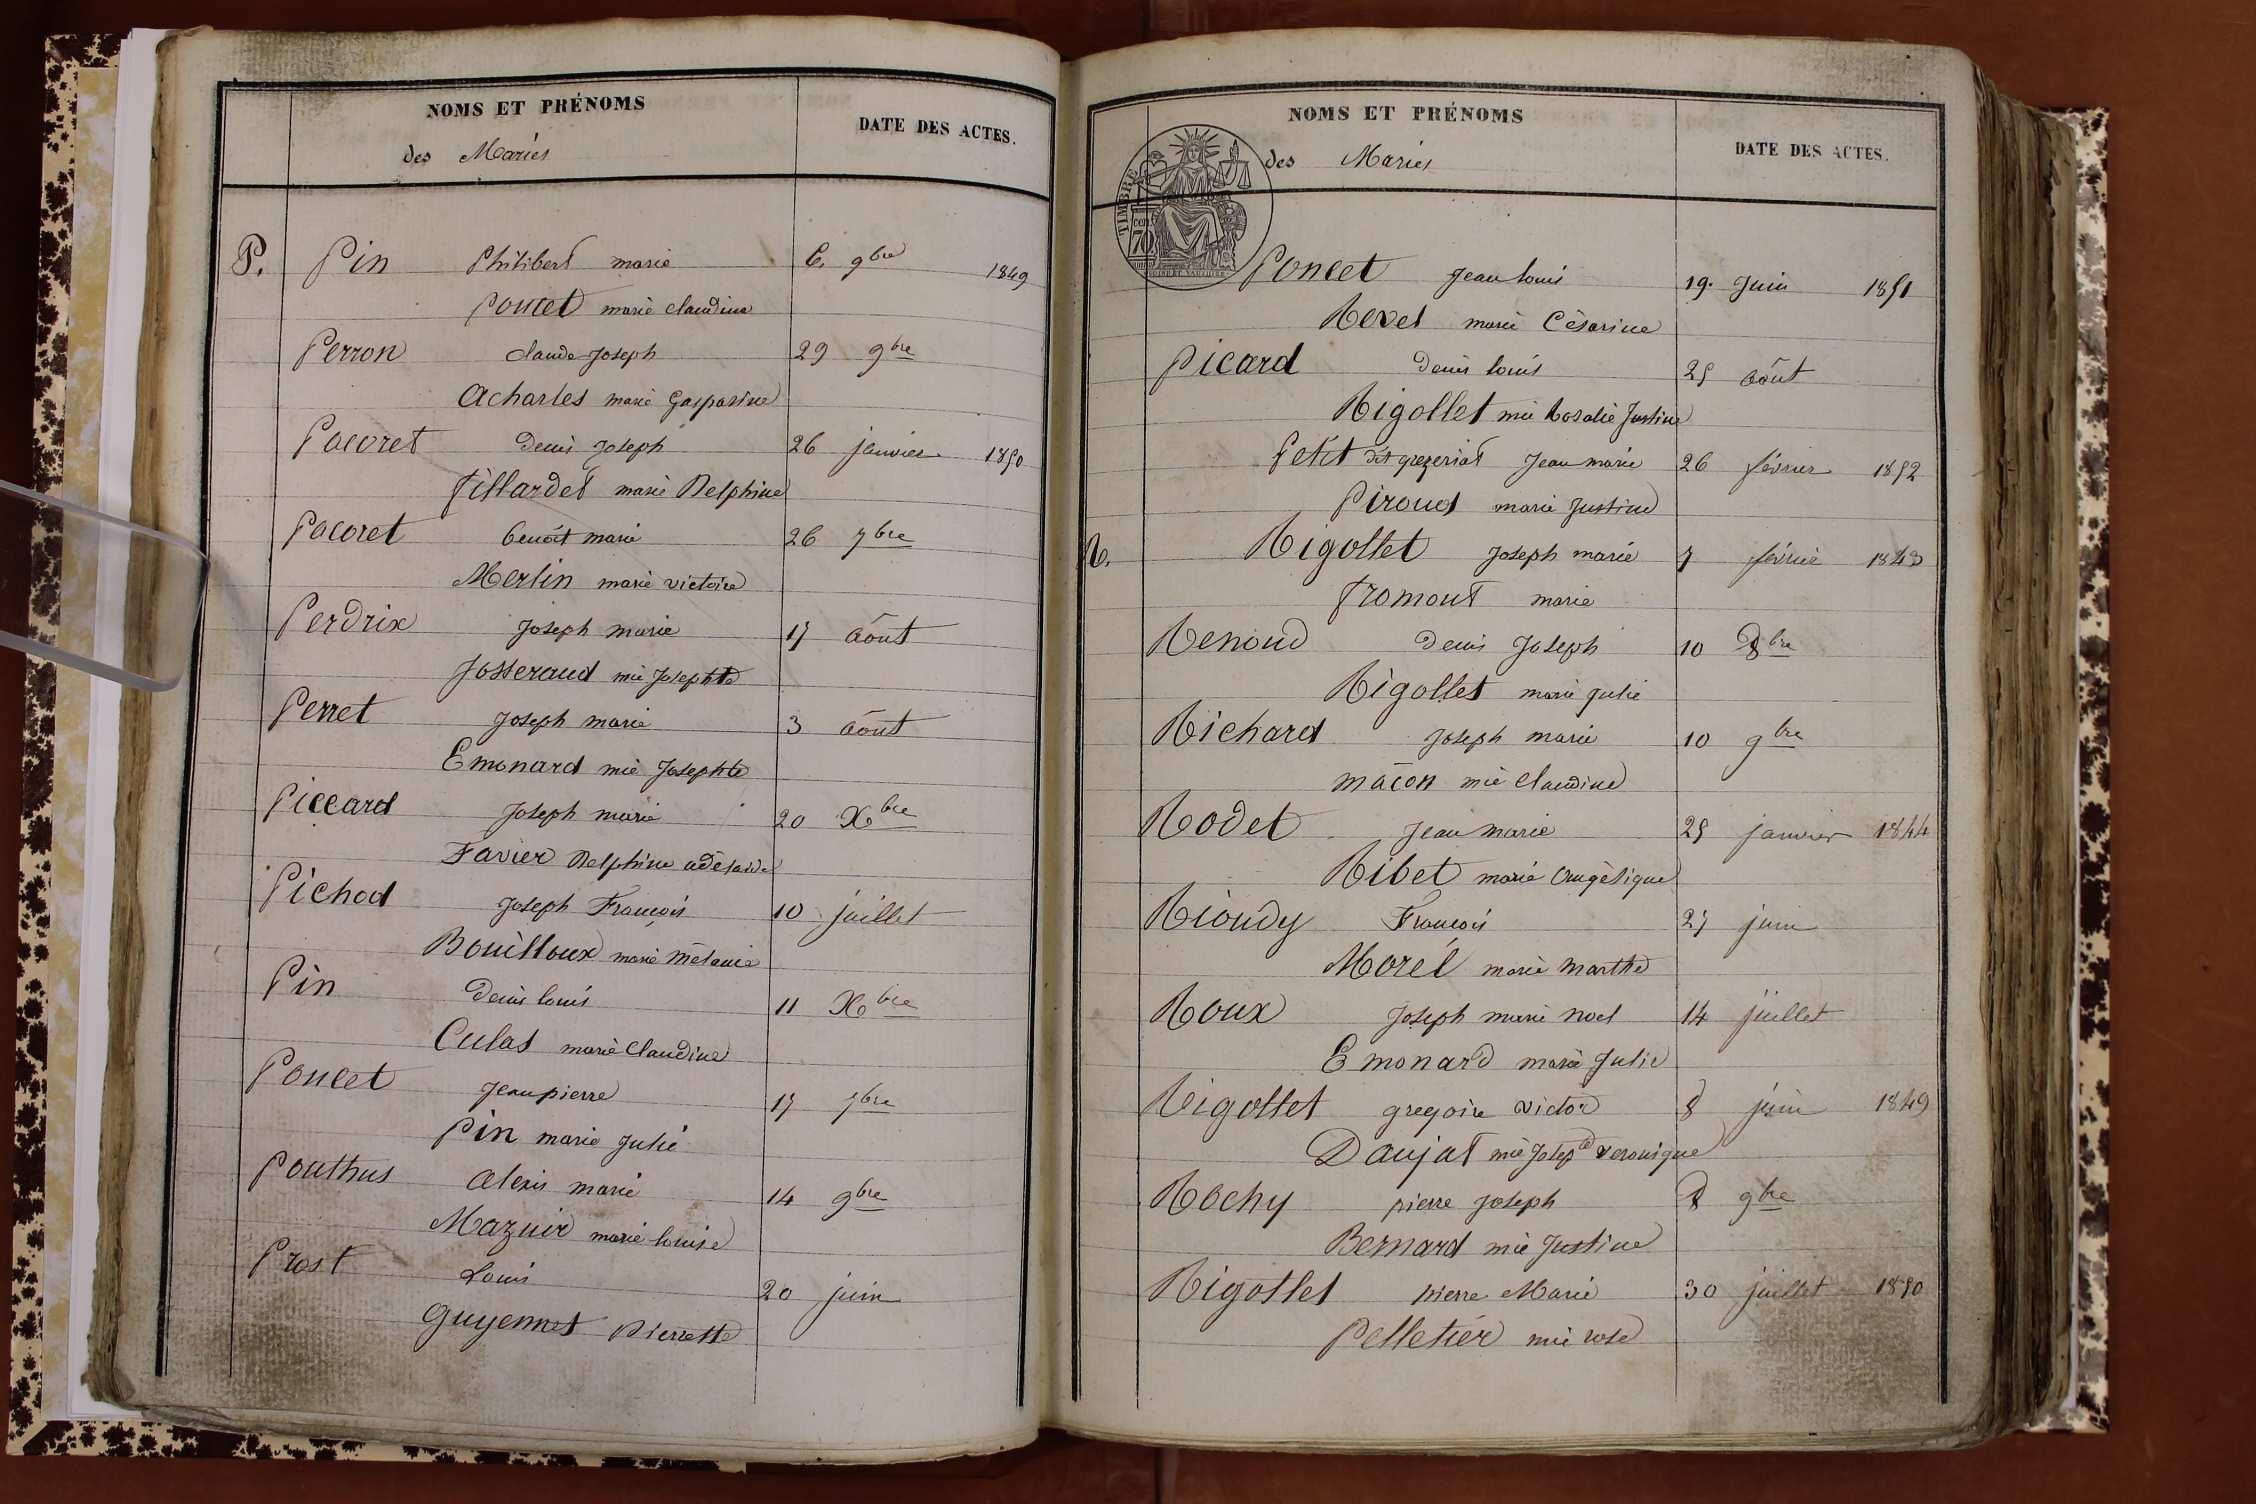 NOMS ET PRÉNOMS
DATE DES ACTES.
des Mariés
P. Pin Philibert marie 6 9bre 1849
Poncet marie claudine
Perron claude Joseph 29 9bre
Acharles marie Gasparine
Pacoret Denis Joseph 26 janvier 1850
Tillardet marie Delphine
Pacoret benoit marie 26 7bre
Merlin marie victoire
Perdrix Joseph marie 17 août
Josserand mie Josephte
Perret Joseph marie 3 août
Emonard mie Josephte
Piccard Joseph marie 20 Xbre
Favier Delphine adélaide
Pichod Joseph François 10 juillet
Bouilloux marie mélanie
Pin Denis louis 11 Xbre
Culas marie Claudine
Poncet Jean pierre 17 7bre
Pin marie Julie
Pouthus alexis marie 14 9bre
Mazuir marie louise
Prost Louis 20 juin
guyennet pierrette
NOMS ET PRÉNOMS
DATE DES ACTES.
des Mariés
TIMBRE
70
Poncet Jean louis 19. Juin 1851
Revel marie Césarine
Picard Denis louis 25 août
Rigollet mie Rosalie Justine
Petit dit grezeriat Jean marie 26 février 1852
Piroud marie Justine
R. Rigollet Joseph marie 7 février 1843
Fromont marie
Renoud Denis Joseph 10 8bre
Rigollet marie Julie
Richard Joseph marie 10 9bre
mâcon mie Claudine
Rodet Jean marie 25 janvier 1844
Ribet marie Angélique
Rioudy François 27 juin
Morel marie marthe
Roux Joseph marie noel 14 juillet
Emonard marie Julie
Rigollet gregoire victor 8 juin 1849
Daujat mie Josepte veronique
Rochy pierre Joseph 8 9bre
Bernard mie Justine
Rigollet pierre Marie 30 juillet 1850
Pelletier mie rose